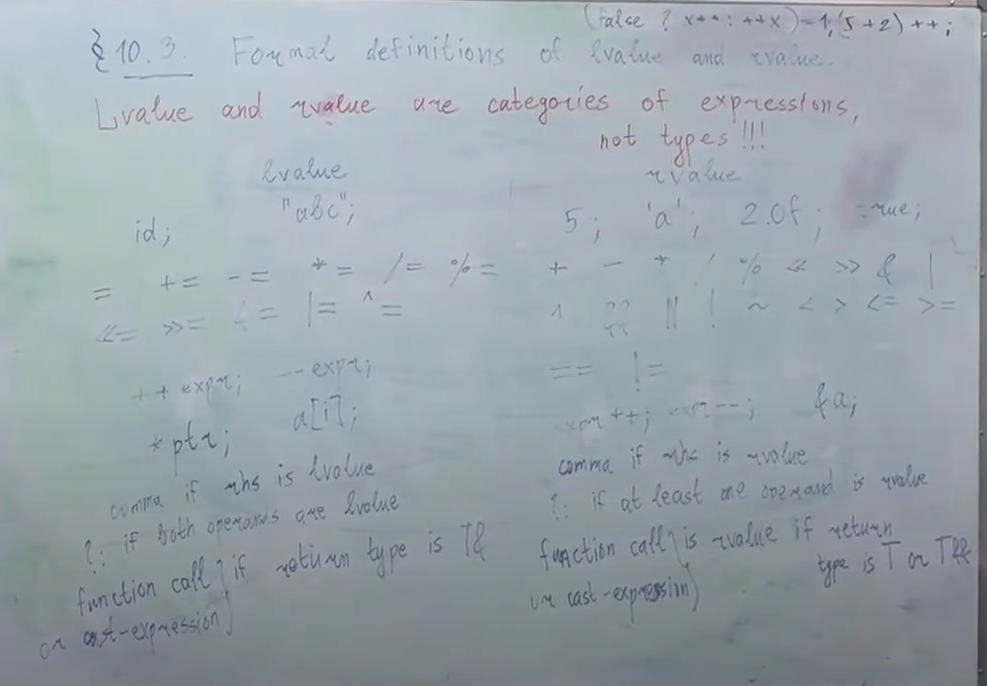 (false ? x++ : ++x) = 1, (5+2)++;
§ 10.3. Formal definitions of lvalue and rvalue.
Lvalue and rvalue are categories of expressions,
not types!!!
lvalue
"abc";
id;
= += -= *= /= %=
<<= >>= &= |= ^=
++expr; --expr;
*ptr; a[i];
comma if rhs is lvalue
?: if both operands are lvalue
function call } if return type is T&
or cast-expression
rvalue
5; 'a'; 2.0f; true;
+ - * / % << >> & |
^ && || ! ~ < > <= >=
== !=
expr++; expr--; &a;
comma if rhs is rvalue
?: if at least one operand is rvalue
function call } is rvalue if return
or cast-expression } type is T or T&&